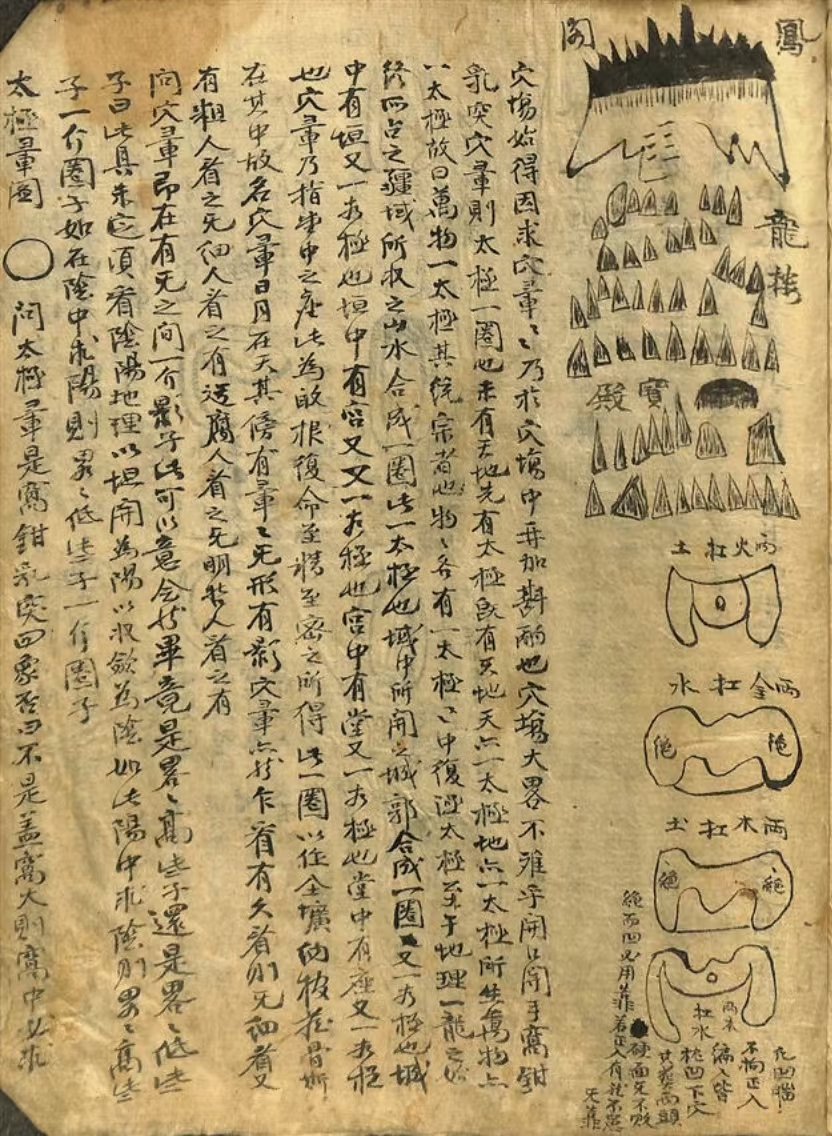 鳳閣
龍樓
寶殿
兩火扛土
兩金扛水
絕 絕
兩木扛土
絕 絕
扛水
凡凹腦
不拘正入
偏入皆
枕凹下穴
兩頭
硬面无不敗
絕而凹必用靠若正入有托不忌
无靠
穴塲始得因求穴暈〻乃於穴塲中再加斟酌也穴塲大畧不離乎開口開手窩鉗
乳突穴暈則太極一圈也未有天地先有太極既有天地天亦一太極地亦一太極所生萬物亦
一太極故曰萬物一太極其統宗者也物〻各有一太極〻中復涵太極至于地理一龍之始
終所占之疆域所收之山水合成一圈此一太極也域中所開之城郭合成一圈又一太極也城
中有垣又一太極也垣中有宮又又一太極也宮中有堂又一太極也堂中有座又一太極
也穴暈乃指坐中之座此為皈根復命至精至密之所得此一圈以任全壙納棺葬骨斯
在其中故名穴暈日月在天其傍有暈〻无形有影穴暈亦然乍看有久看則无細看又
有粗人看之无細人看之有迂腐人看之无明哲人看之有
問穴暈即在有无之間一个影子此可以意會然畢竟是畧〻高些子還是畧〻低些
子曰此真未定須看陰陽地理以坦開為陽以收斂為陰如此陽中求陰則畧〻高些
子一个圈子如在陰中求陽則畧〻低些子一个圈子
太極暈圖 ○ 問太極暈是窩鉗乳突四象否曰不是蓋窩大則窩中必求